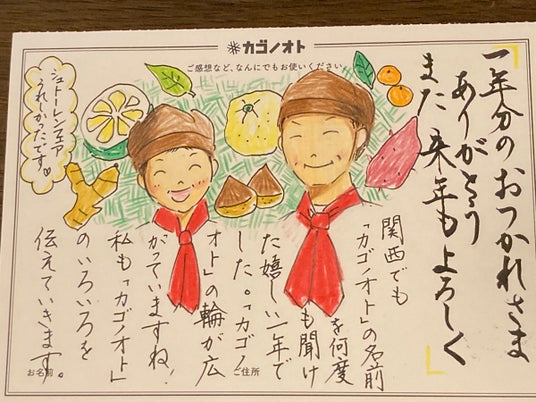 カゴノオト
ご感想など、なんにでもお使いください
「一年分のおつかれさま
ありがとう
また来年もよろしく」
シュトーレンフェア
うれしかったです。
関西でも
「カゴノオト」の名前
を何度
も聞け
た嬉しい一年で
した。「カゴノ
オト」の輪が広
がっていますね!
私も「カゴノオト」
のいろいろを
伝えていきます。
お名前
ご住所